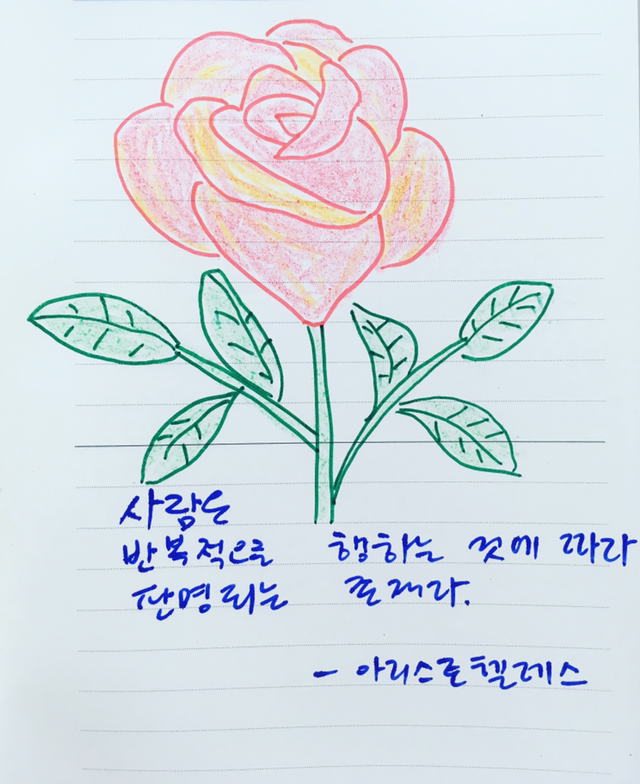 사람은
반복적으로 행하는 것에 따라
판명되는 존재라.
- 아리스토텔레스